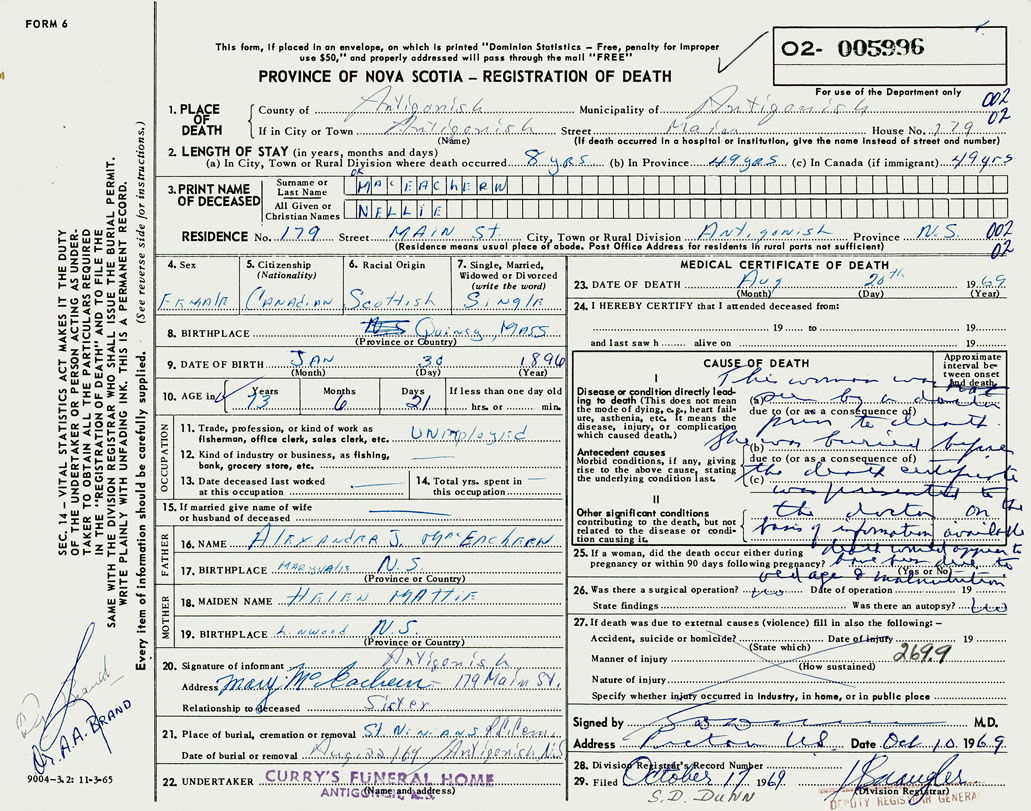 FORM 6
This form, if placed in an envelope, on which is printed "Dominion Statistics – Free, penalty for improper
use $50," and properly addressed will pass through the mail "FREE"
02- 005996
For use of the Department only
PROVINCE OF NOVA SCOTIA – REGISTRATION OF DEATH
1. PLACE OF DEATH
County of Antigonish Municipality of Antigonish 002
02
If in City or Town Antigonish Street Main House No. 179
(Name) (If death occurred in a hospital or institution, give the name instead of street and number)
2. LENGTH OF STAY (in years, months and days)
(a) In City, Town or Rural Division where death occurred 8 yrs (b) In Province 49 yrs (c) In Canada (if immigrant) 49 yrs
3. PRINT NAME OF DECEASED
Surname or Last Name OK MacEACHERN
All Given or Christian Names NELLIE
RESIDENCE No. 179 Street MAIN ST. City, Town or Rural Division ANTIGONISH Province N.S. 002
02
(Residence means usual place of abode. Post Office Address for residents in rural parts not sufficient)
4. Sex
FEMALE
5. Citizenship (Nationality)
CANADIAN
6. Racial Origin
Scottish
7. Single, Married, Widowed or Divorced (write the word)
SINGLE
8. BIRTHPLACE Quincy, MASS
(Province or Country)
9. DATE OF BIRTH JAN 30 1896
(Month) (Day) (Year)
10. AGE in Years Months Days If less than one day old
73 6 21 hrs. or min.
OCCUPATION
11. Trade, profession, or kind of work as
fisherman, office clerk, sales clerk, etc. UNemployed
12. Kind of industry or business, as fishing,
bank, grocery store, etc.
13. Date deceased last worked
at this occupation
14. Total yrs. spent in
this occupation
15. If married give name of wife
or husband of deceased
FATHER
16. NAME ALEXANDER J. MacEACHERN
17. BIRTHPLACE MARYVALE N.S.
(Province or Country)
MOTHER
18. MAIDEN NAME HELEN MATTIE
19. BIRTHPLACE Linwood N.S.
(Province or Country)
20. Signature of informant Antigonish
Address Mary McEachern – 179 Main St.
Relationship to deceased Sister
21. Place of burial, cremation or removal ST. NINIANS
Date of burial or removal Aug. 22/69 Antigonish N.S.
22. UNDERTAKER CURRY'S FUNERAL HOME
(Name and address)
ANTIGONISH, N.S.
MEDICAL CERTIFICATE OF DEATH
23. DATE OF DEATH Aug 20th 1969
(Month) (Day) (Year)
24. I HEREBY CERTIFY that I attended deceased from:
19 to 19
and last saw h alive on 19
CAUSE OF DEATH
Approximate interval between onset and death
I
Disease or condition directly leading to death (This does not mean the mode of dying, e.g., heart failure, asthenia, etc. It means the disease, injury, or complication which caused death.)
(a)
due to (or as a consequence of)
Antecedent causes
Morbid conditions, if any, giving rise to the above cause, stating the underlying condition last.
(b)
due to (or as a consequence of)
(c)
II
Other significant conditions
contributing to the death, but not related to the disease or condition causing it.
This woman was not
seen by a doctor
prior to death.
She was buried before
the death certificate
was presented to the
the doctor on
basis of information available
death would appear to
have been due to
old age & malnutrition
25. If a woman, did the death occur either during
pregnancy or within 90 days following pregnancy?
(Yes or No)
26. Was there a surgical operation? no Date of operation 19
State findings Was there an autopsy? No
27. If death was due to external causes (violence) fill in also the following: –
Accident, suicide or homicide? Date of injury 19
(State which)
Manner of injury 269.9
(How sustained)
Nature of injury
Specify whether injury occurred in industry, in home, or in public place
Signed by M.D.
Address Pictou N.S. Date Oct 10 1969
28. Division Registrar's Record Number
29. Filed October 17 1969
(Division Registrar)
S.D. DUNN DEPUTY REGISTRAR GENERAL
SEC. 14 – VITAL STATISTICS ACT MAKES IT THE DUTY
OF THE UNDERTAKER OR PERSON ACTING AS UNDERTAKER TO OBTAIN ALL THE PARTICULARS REQUIRED
IN THE "REGISTRATION OF DEATH" AND TO FILE THE
SAME WITH THE DIVISION REGISTRAR WHO SHALL ISSUE THE BURIAL PERMIT.
WRITE PLAINLY WITH UNFADING INK. THIS IS A PERMANENT RECORD.
Every item of information should be carefully supplied. (See reverse side for instructions.)
Dr. Brand
Dr. A.A. BRAND
9004-3.21 11-3-65